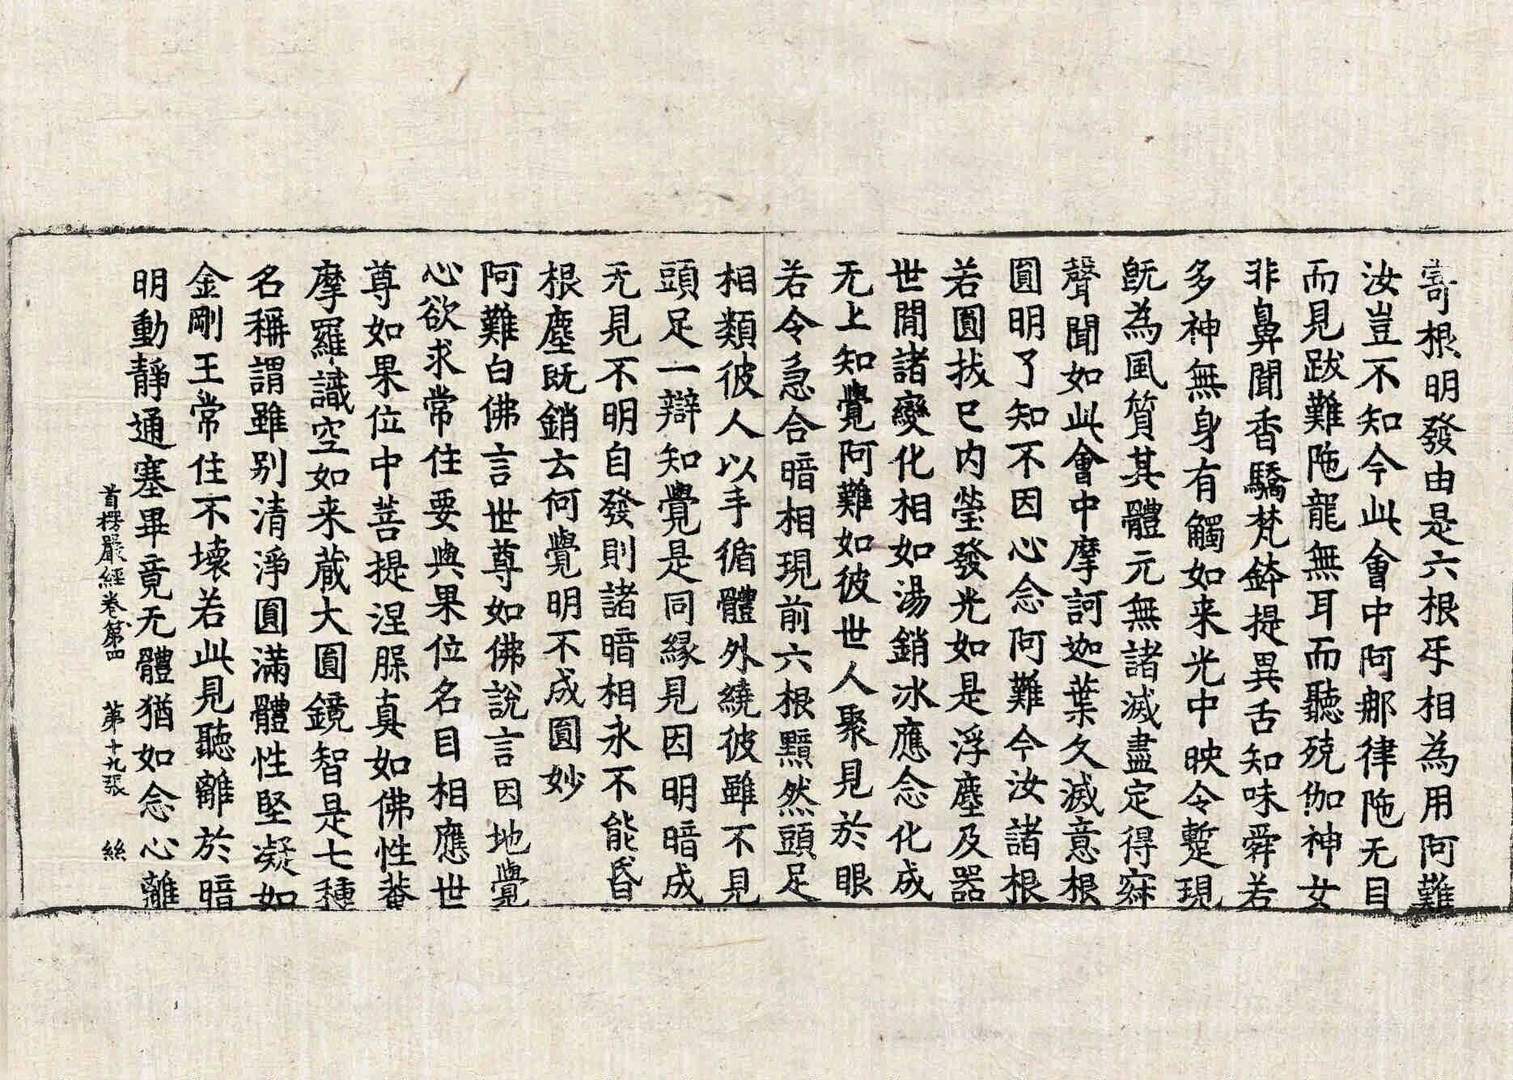 寄根明發由是六根㸦相為用阿難
汝豈不知今此會中阿那律陁无目
而見跋難陁龍無耳而聽殑伽神女
非鼻聞香驕梵鉢提異舌知味舜若
多神無身有觸如来光中映令蹔現
旣為風質其體元無諸滅盡定得寂
聲聞如此會中摩訶迦葉久滅意根
圓明了知不因心念阿難今汝諸根
若圓拔已内瑩發光如是浮塵及器
世閒諸變化相如湯銷冰應念化成
无上知覺阿難如彼世人聚見於眼
若令急合暗相現前六根黯然頭足
相類彼人以手循體外繞彼雖不見
頭足一辯知覺是同緣見因明暗成
无見不明自發則諸暗相永不能昏
根塵旣銷云何覺明不成圓妙
阿難白佛言世尊如佛說言因地覺
心欲求常住要與果位名目相應世
尊如果位中菩提涅脲真如佛性菴
摩羅識空如来蔵大圓鏡智是七種
名稱謂雖别清淨圓滿體性堅凝如
金剛王常住不壞若此見聽離於暗
明動靜通塞畢竟无體猶如念心離
首楞嚴經卷第四 第十九張 絲